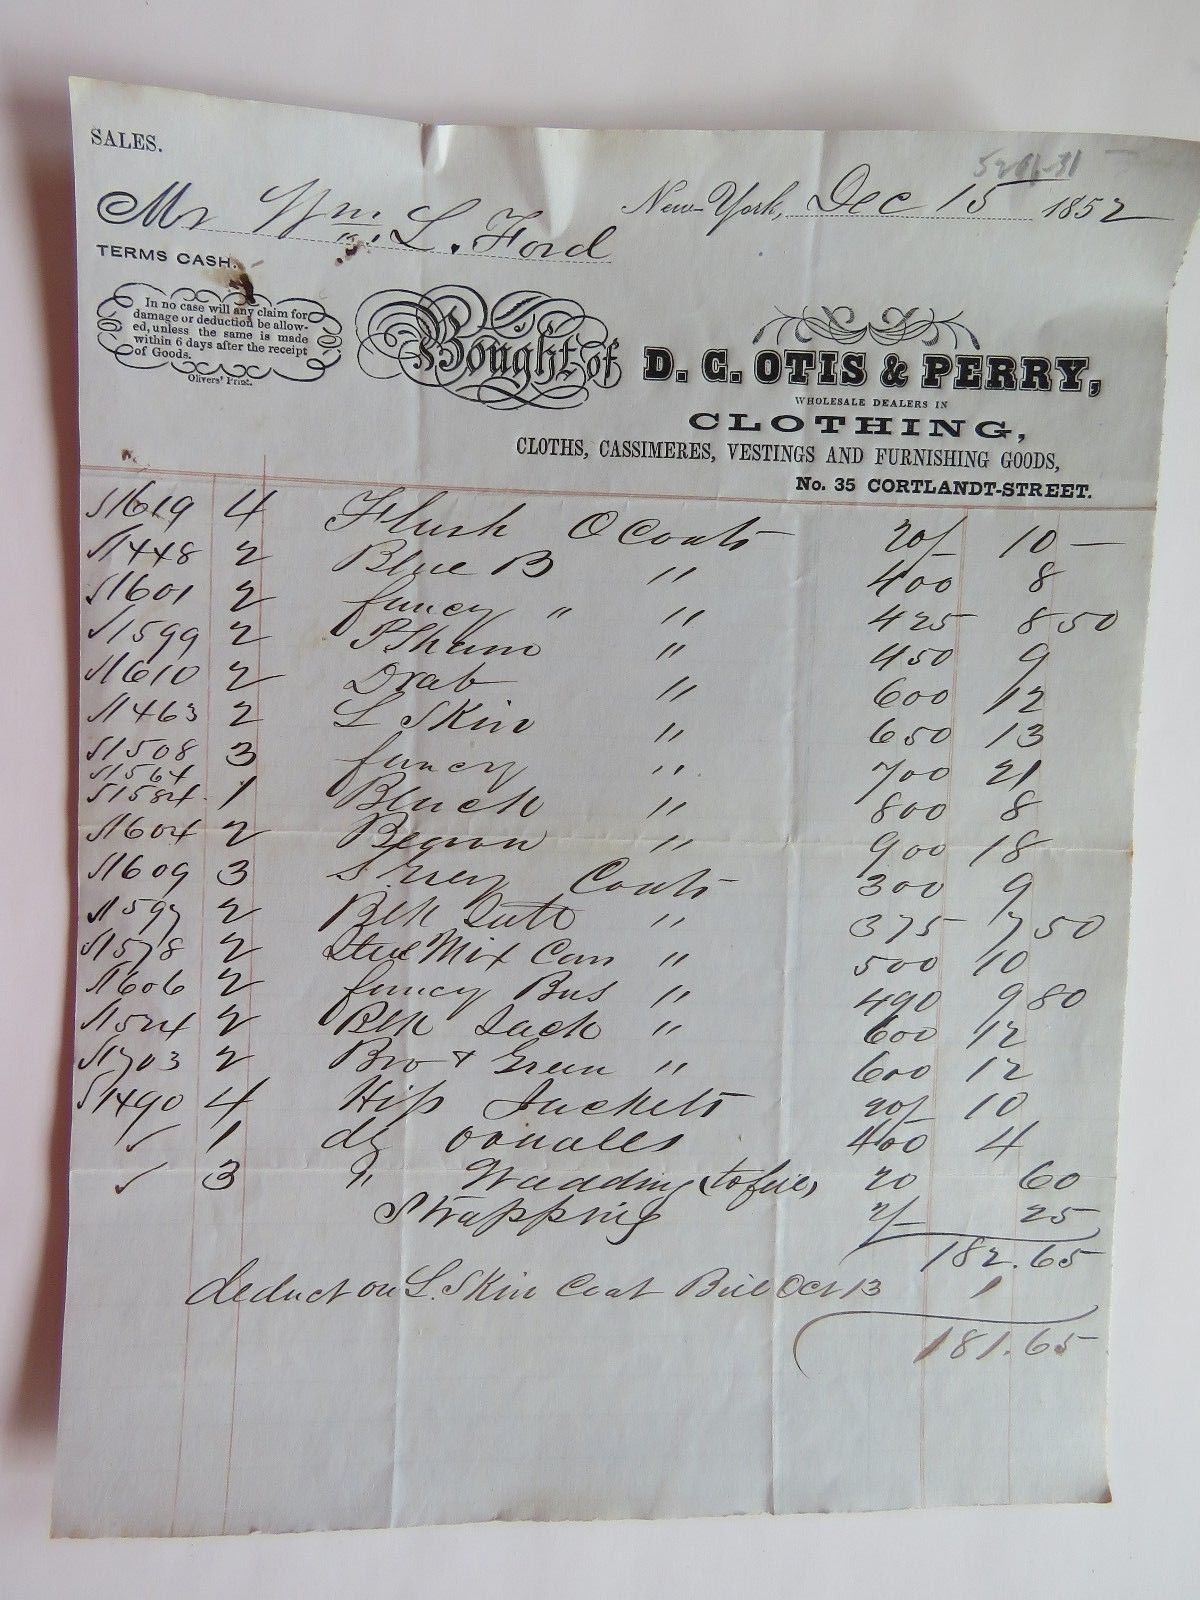 SALES.
New-York, Dec 15 1852
Mr Wm. L. Ford
TERMS CASH.
In no case will any claim for
damage or deduction be allow-
ed, unless the same is made
within 6 days after the receipt
of Goods.
Olivers' Print.
Bought of D. G. OTIS & PERRY,
WHOLESALE DEALERS IN
CLOTHING,
CLOTHS, CASSIMERES, VESTINGS AND FURNISHING GOODS,
No. 35 CORTLANDT-STREET.
1619 4 Flush O Coats 20/- 10 —
1448 2 Blue B " 400 8
1601 2 fancy " " 425 8 50
1599 2 " 450 9
1610 2 Drab " 600 12
1463 2 L Skin " 650 13
1508 3 fancy " 700 21
1564
1584 1 Black " 800 8
1604 2 " 900 18
1609 3 S Grey Coats 300 9
1597 2 Blk " 375 7 50
1578 2 Mix " 500 10
1606 2 fancy Bus " 490 9 80
1524 2 Blk Sack " 600 12
1703 2 Bro & Green " 600 12
1490 4 Hip Jackets 20/ 10
✓ 1 dz 400 4
✓ 3 " Wadding 20 60
Strapping 2/- 25
182.65
deduct on L. Skin Coat Bill Oct 13 1
181.65